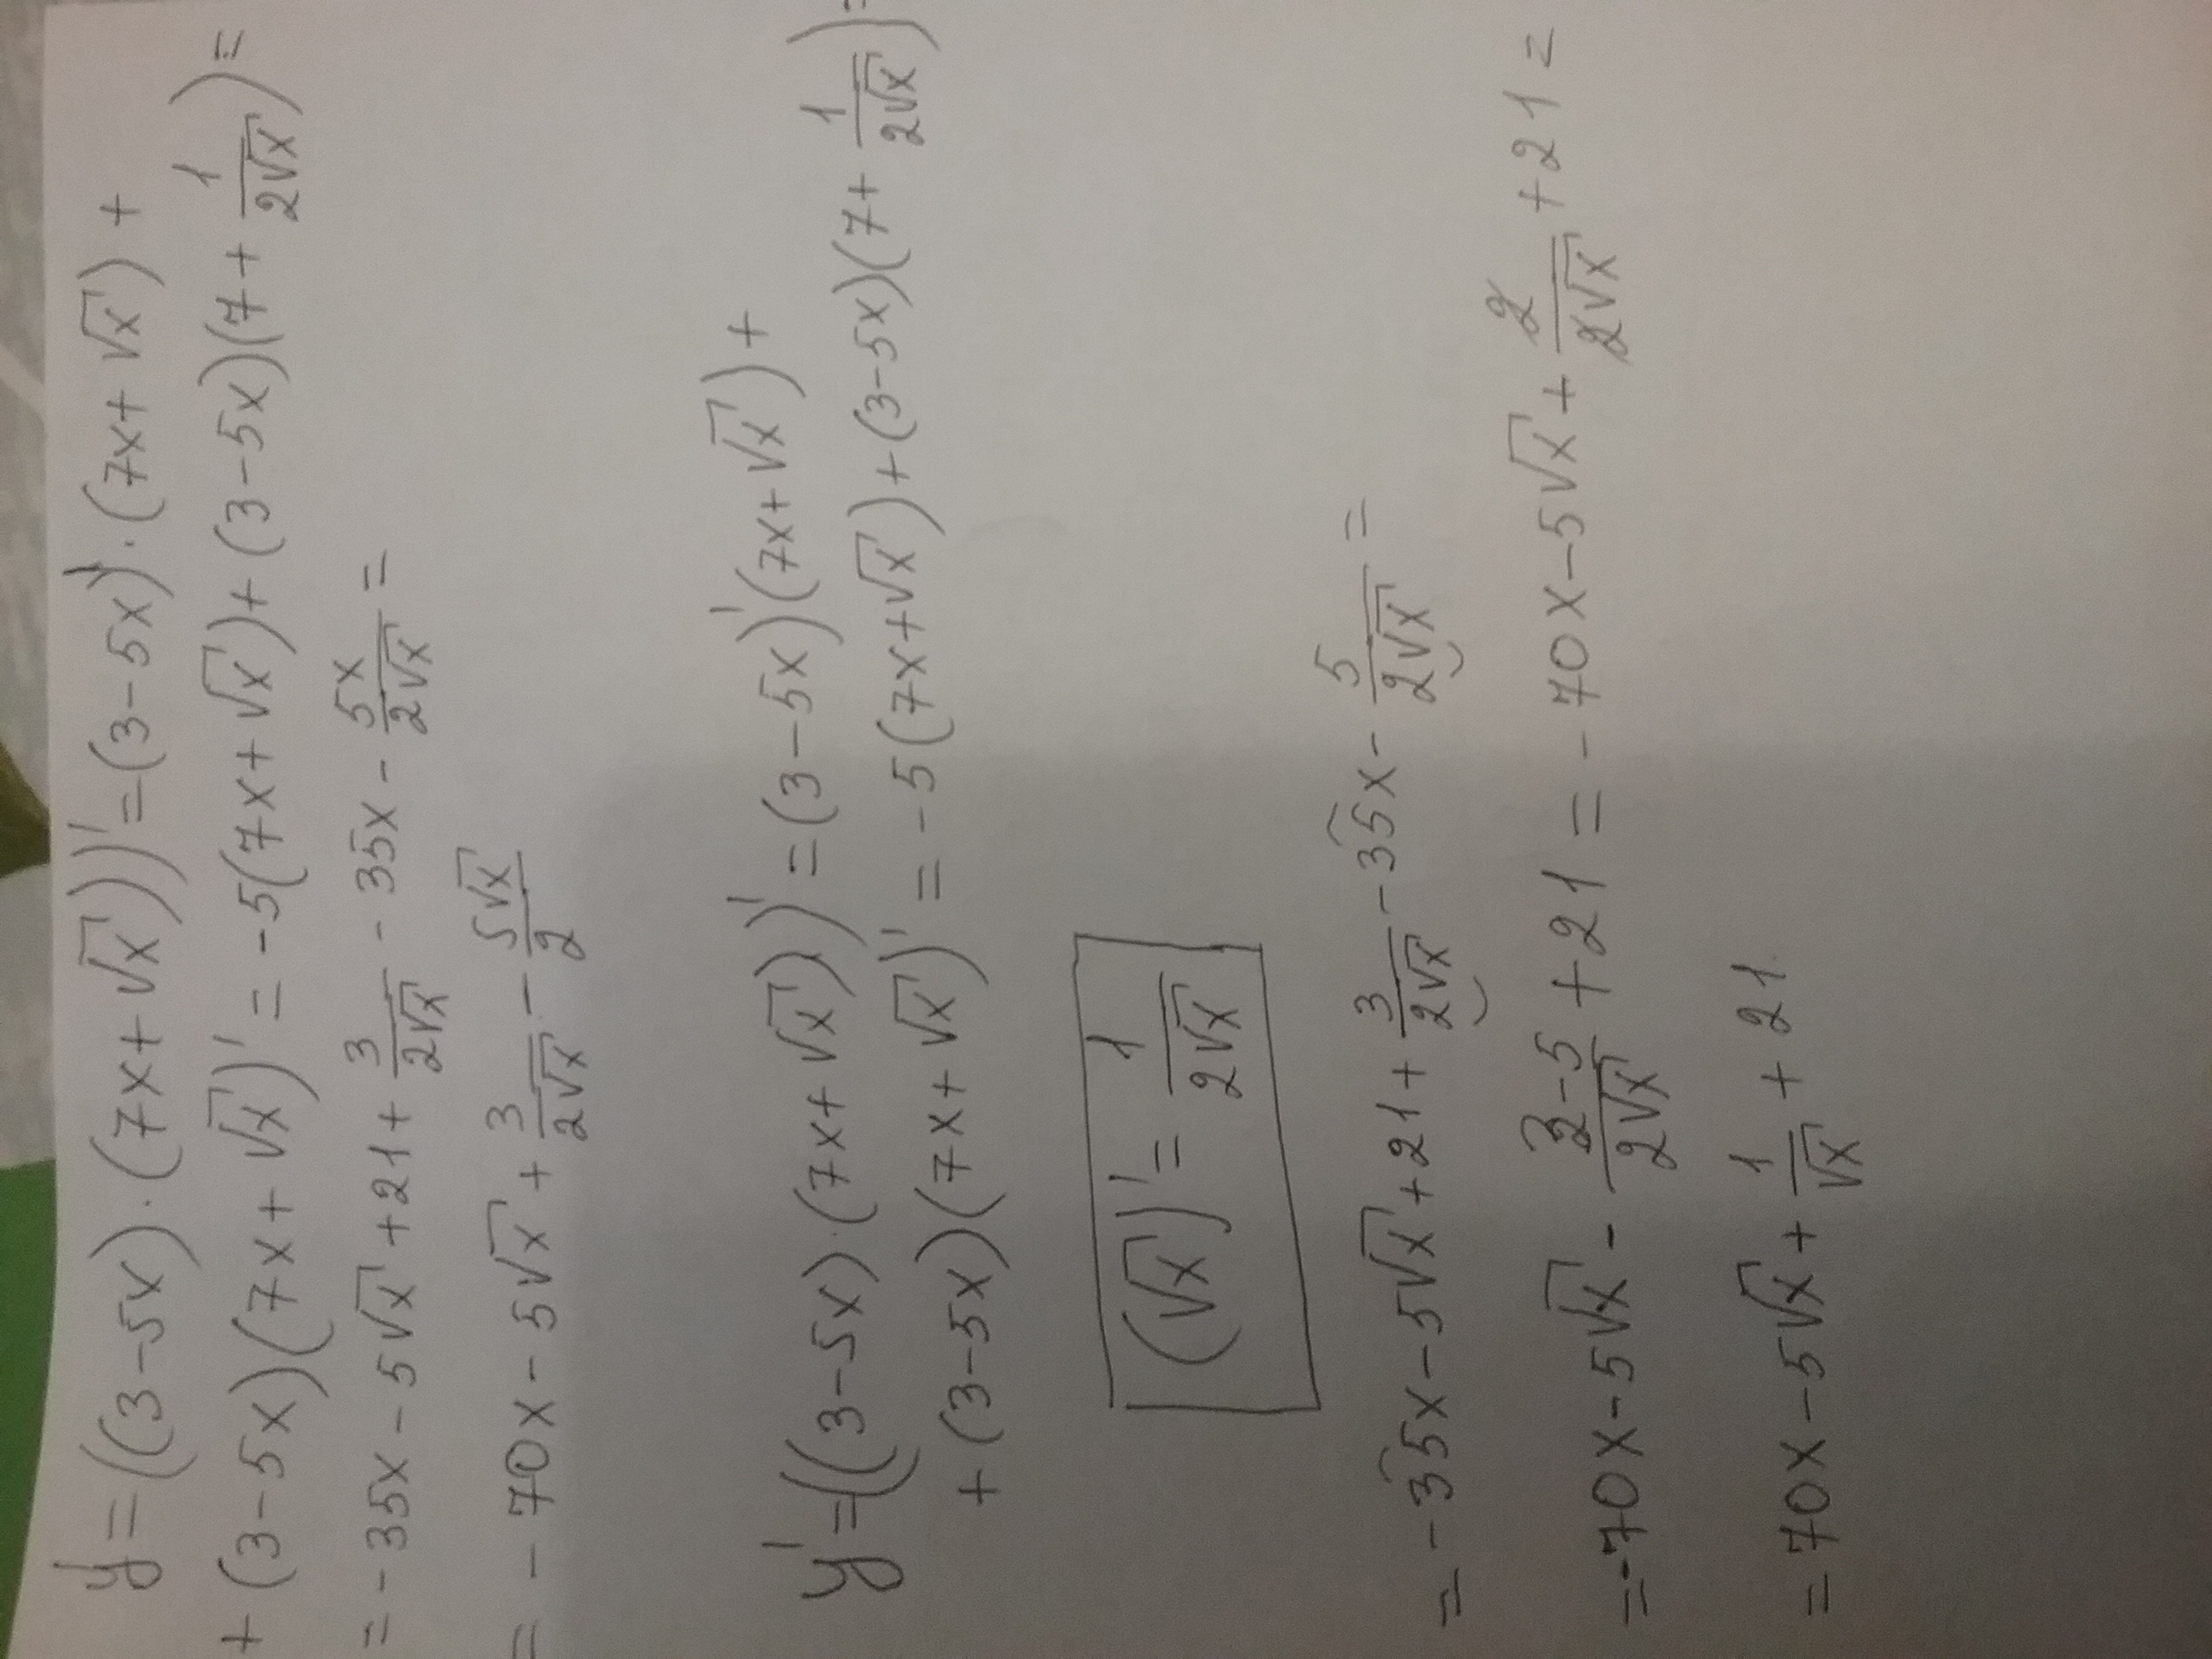 y' = ((3-5x)·(7x+√x))' = (3-5x)'·(7x+√x) +
+ (3-5x)(7x+√x)' = -5(7x+√x) + (3-5x)(7+1/(2√x)) =
= -35x - 5√x + 21 + 3/(2√x) - 35x - 5x/(2√x) =
= -70x - 5√x + 3/(2√x) - 5√x/2
y' = ((3-5x)·(7x+√x))' = (3-5x)'(7x+√x) +
+ (3-5x)(7x+√x)' = -5(7x+√x) + (3-5x)(7+1/(2√x)) =
(√x)' = 1/(2√x)
= -35x - 5√x + 21 + 3/(2√x) - 35x - 5/(2√x) =
= -70x - 5√x - (3-5)/(2√x) + 21 = -70x - 5√x + 2/(2√x) + 21 =
= 70x - 5√x + 1/√x + 21.